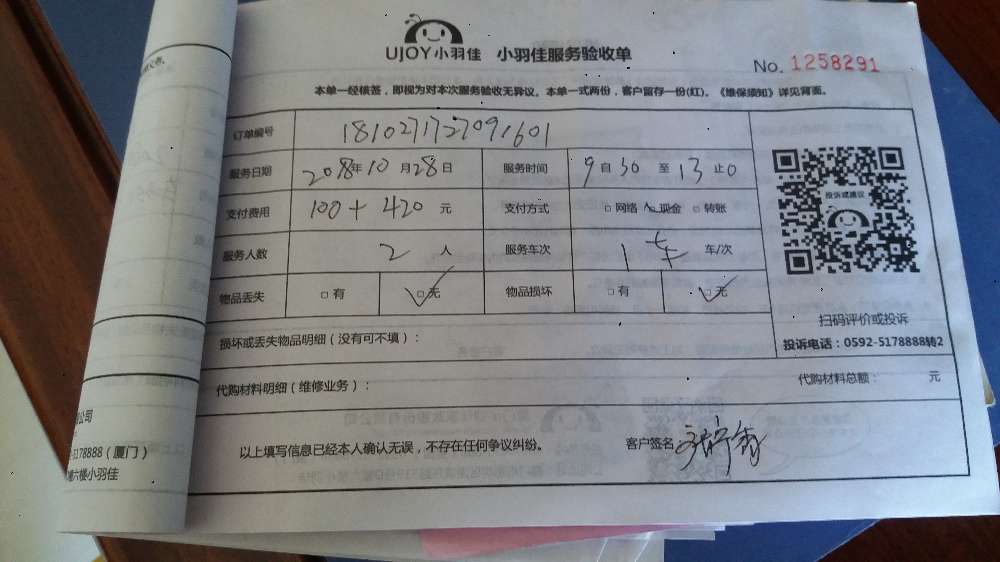 UJOY小羽佳 小羽佳服务验收单
No. 1258291
本单一经核签，即视为对本次服务验收无异议。本单一式两份，客户留存一份(红)。《维保须知》详见背面。
订单编号 1810271727091601
服务日期 2018年10月28日 服务时间 9自30至13止0
支付费用 100+420元 支付方式 □网络 □现金 □转账
服务人数 2人 服务车次 1车 车/次
物品丢失 □有 □无 物品损坏 □有 □无
投诉或建议
扫码评价或投诉
投诉电话：0592-5178888转2
损坏或丢失物品明细（没有可不填）：
代购材料明细（维修业务）： 代购材料总额： 元
以上填写信息已经本人确认无误，不存在任何争议纠纷。 客户签名
公司
-5178888（厦门）
六楼小羽佳